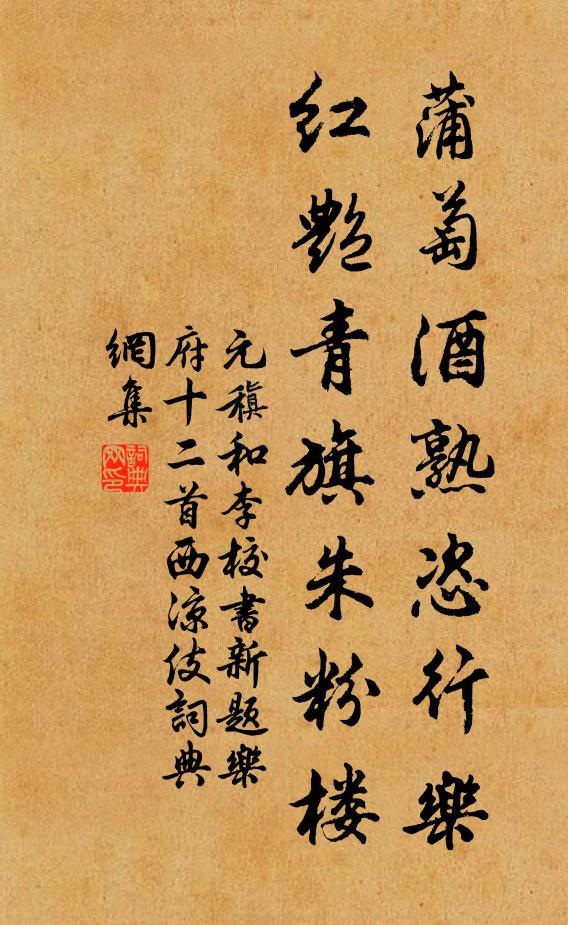 蒲萄酒熟恣行樂
红艷青旗朱粉楼
元稹和李校書新题樂
府十二首西凉伎詞典
網集
詞典網印